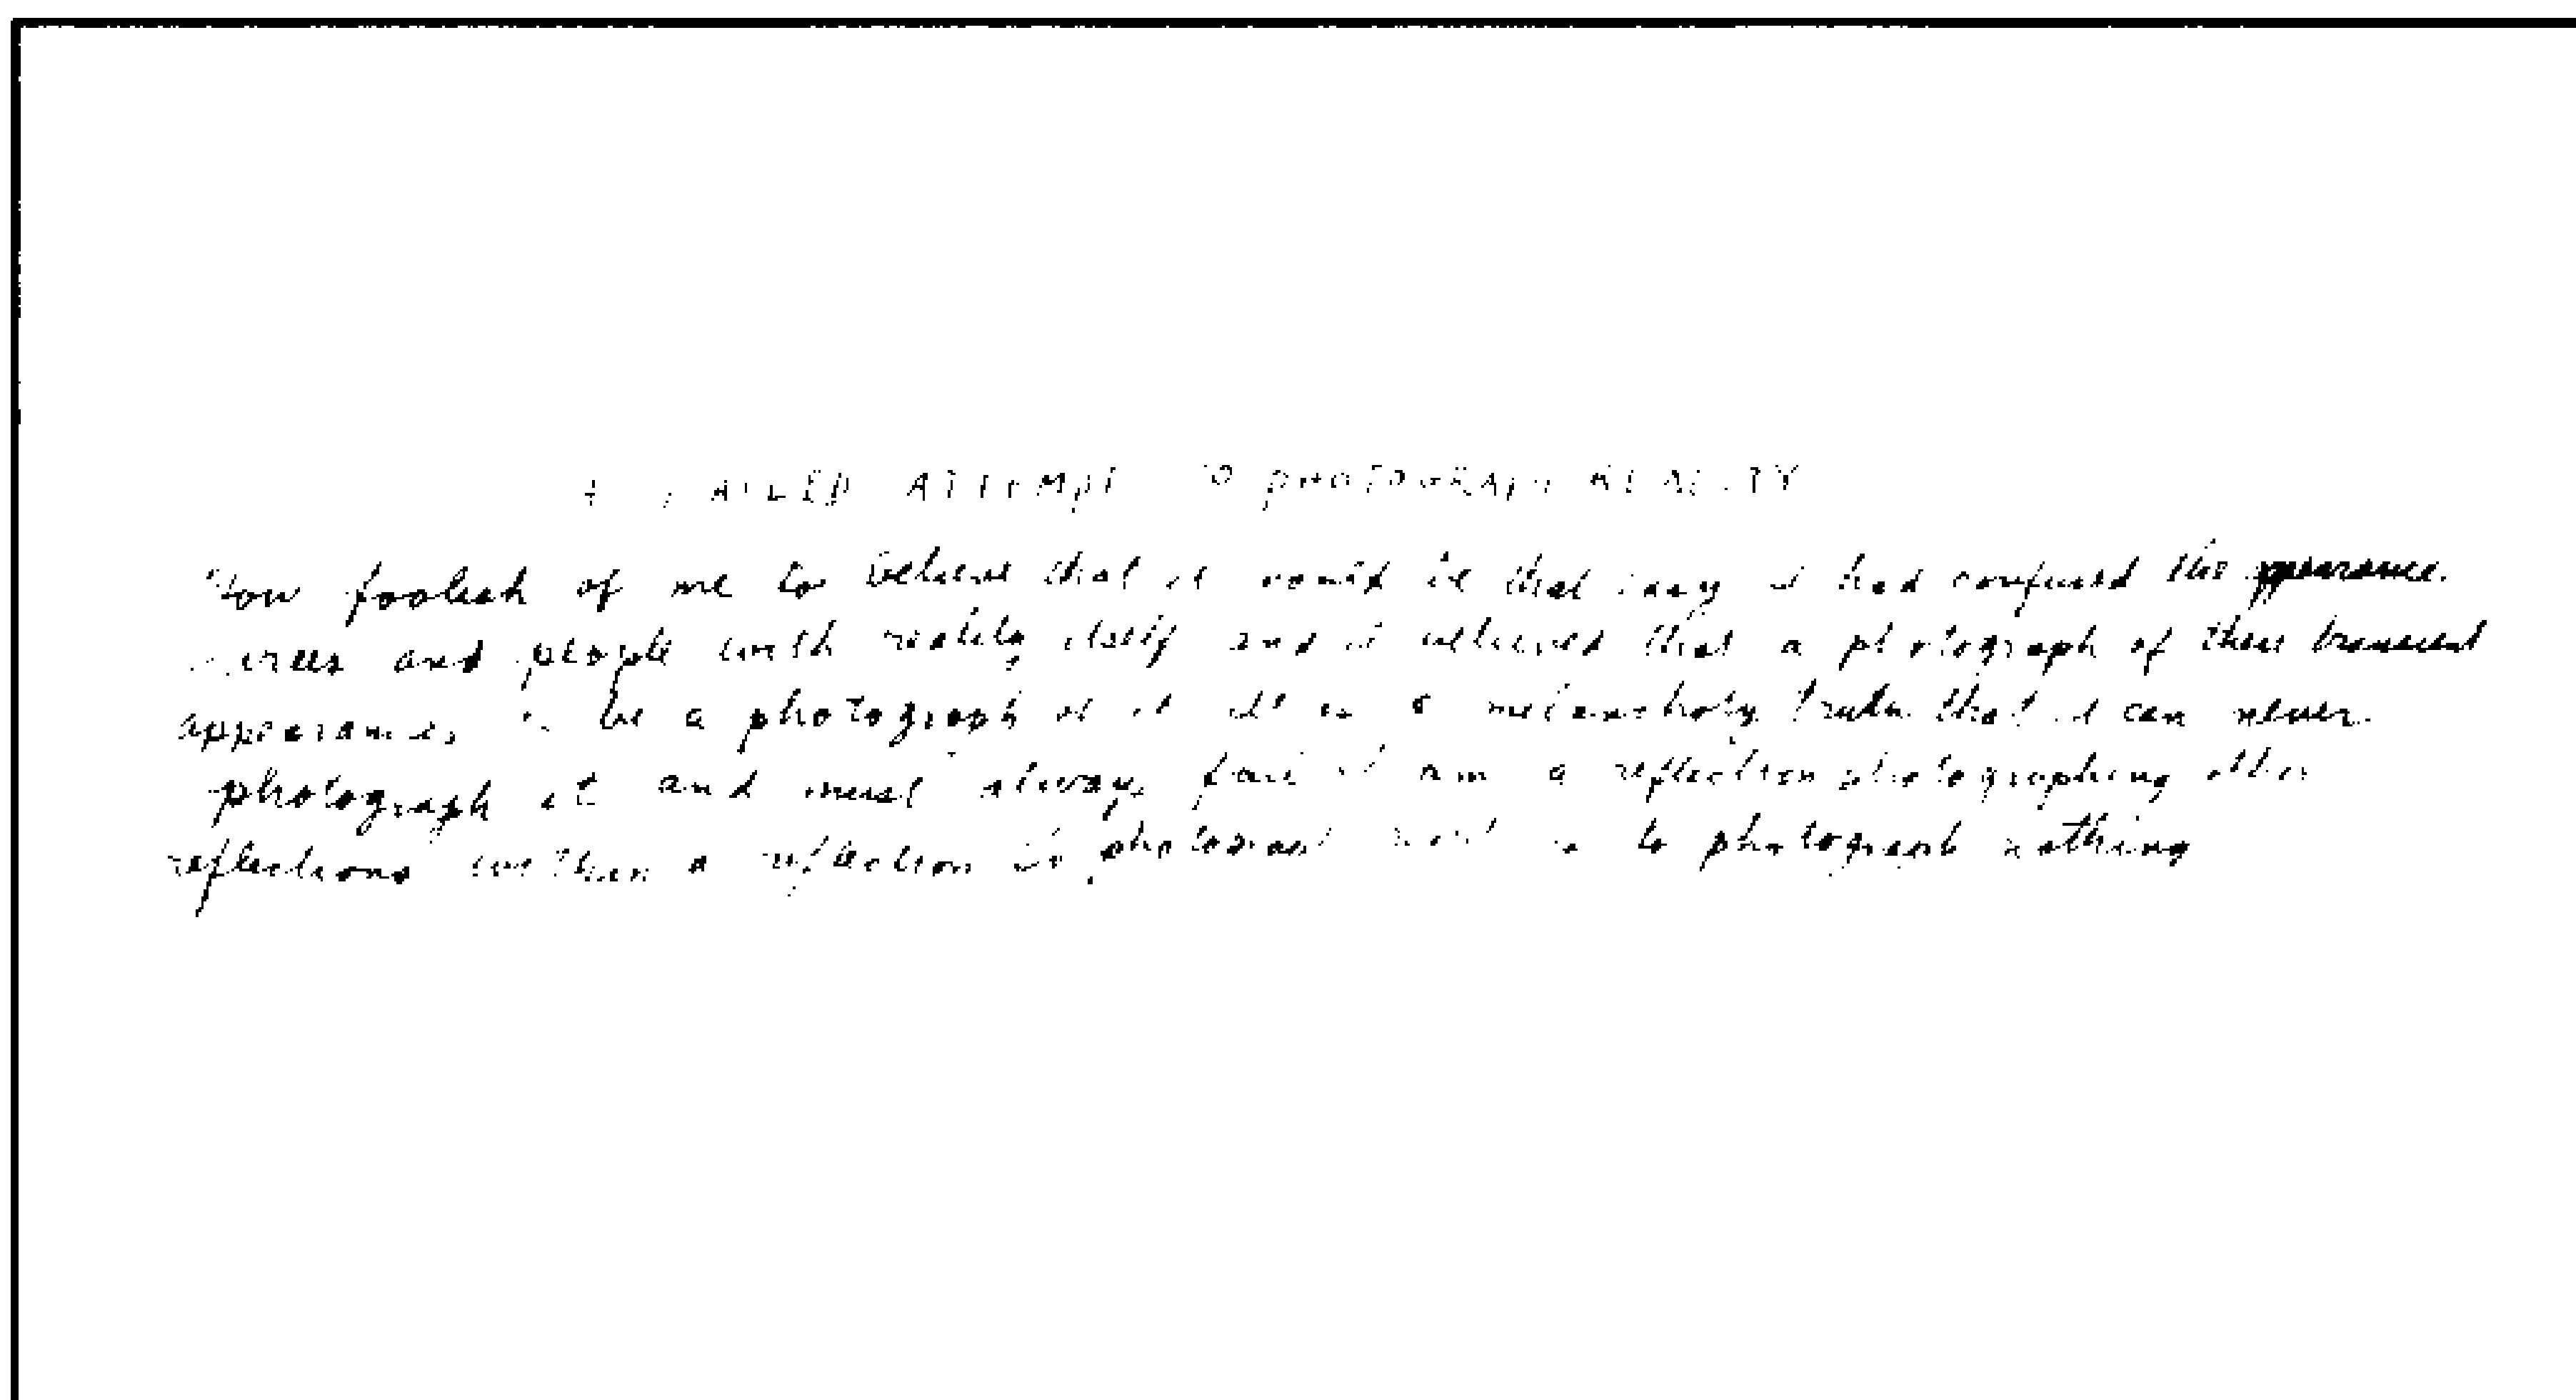 A FAILED ATTEMPT TO PHOTOGRAPH REALITY
How foolish of me to believe that it would be that easy I had confused the appearance
trees and people with reality itself and I believed that a photograph of these transient
appearances to be a photograph of it It is a melancholy truth that I can never
photograph it and must always fail I am a reflection photographing other
reflections within a reflection To photograph is to photograph nothing